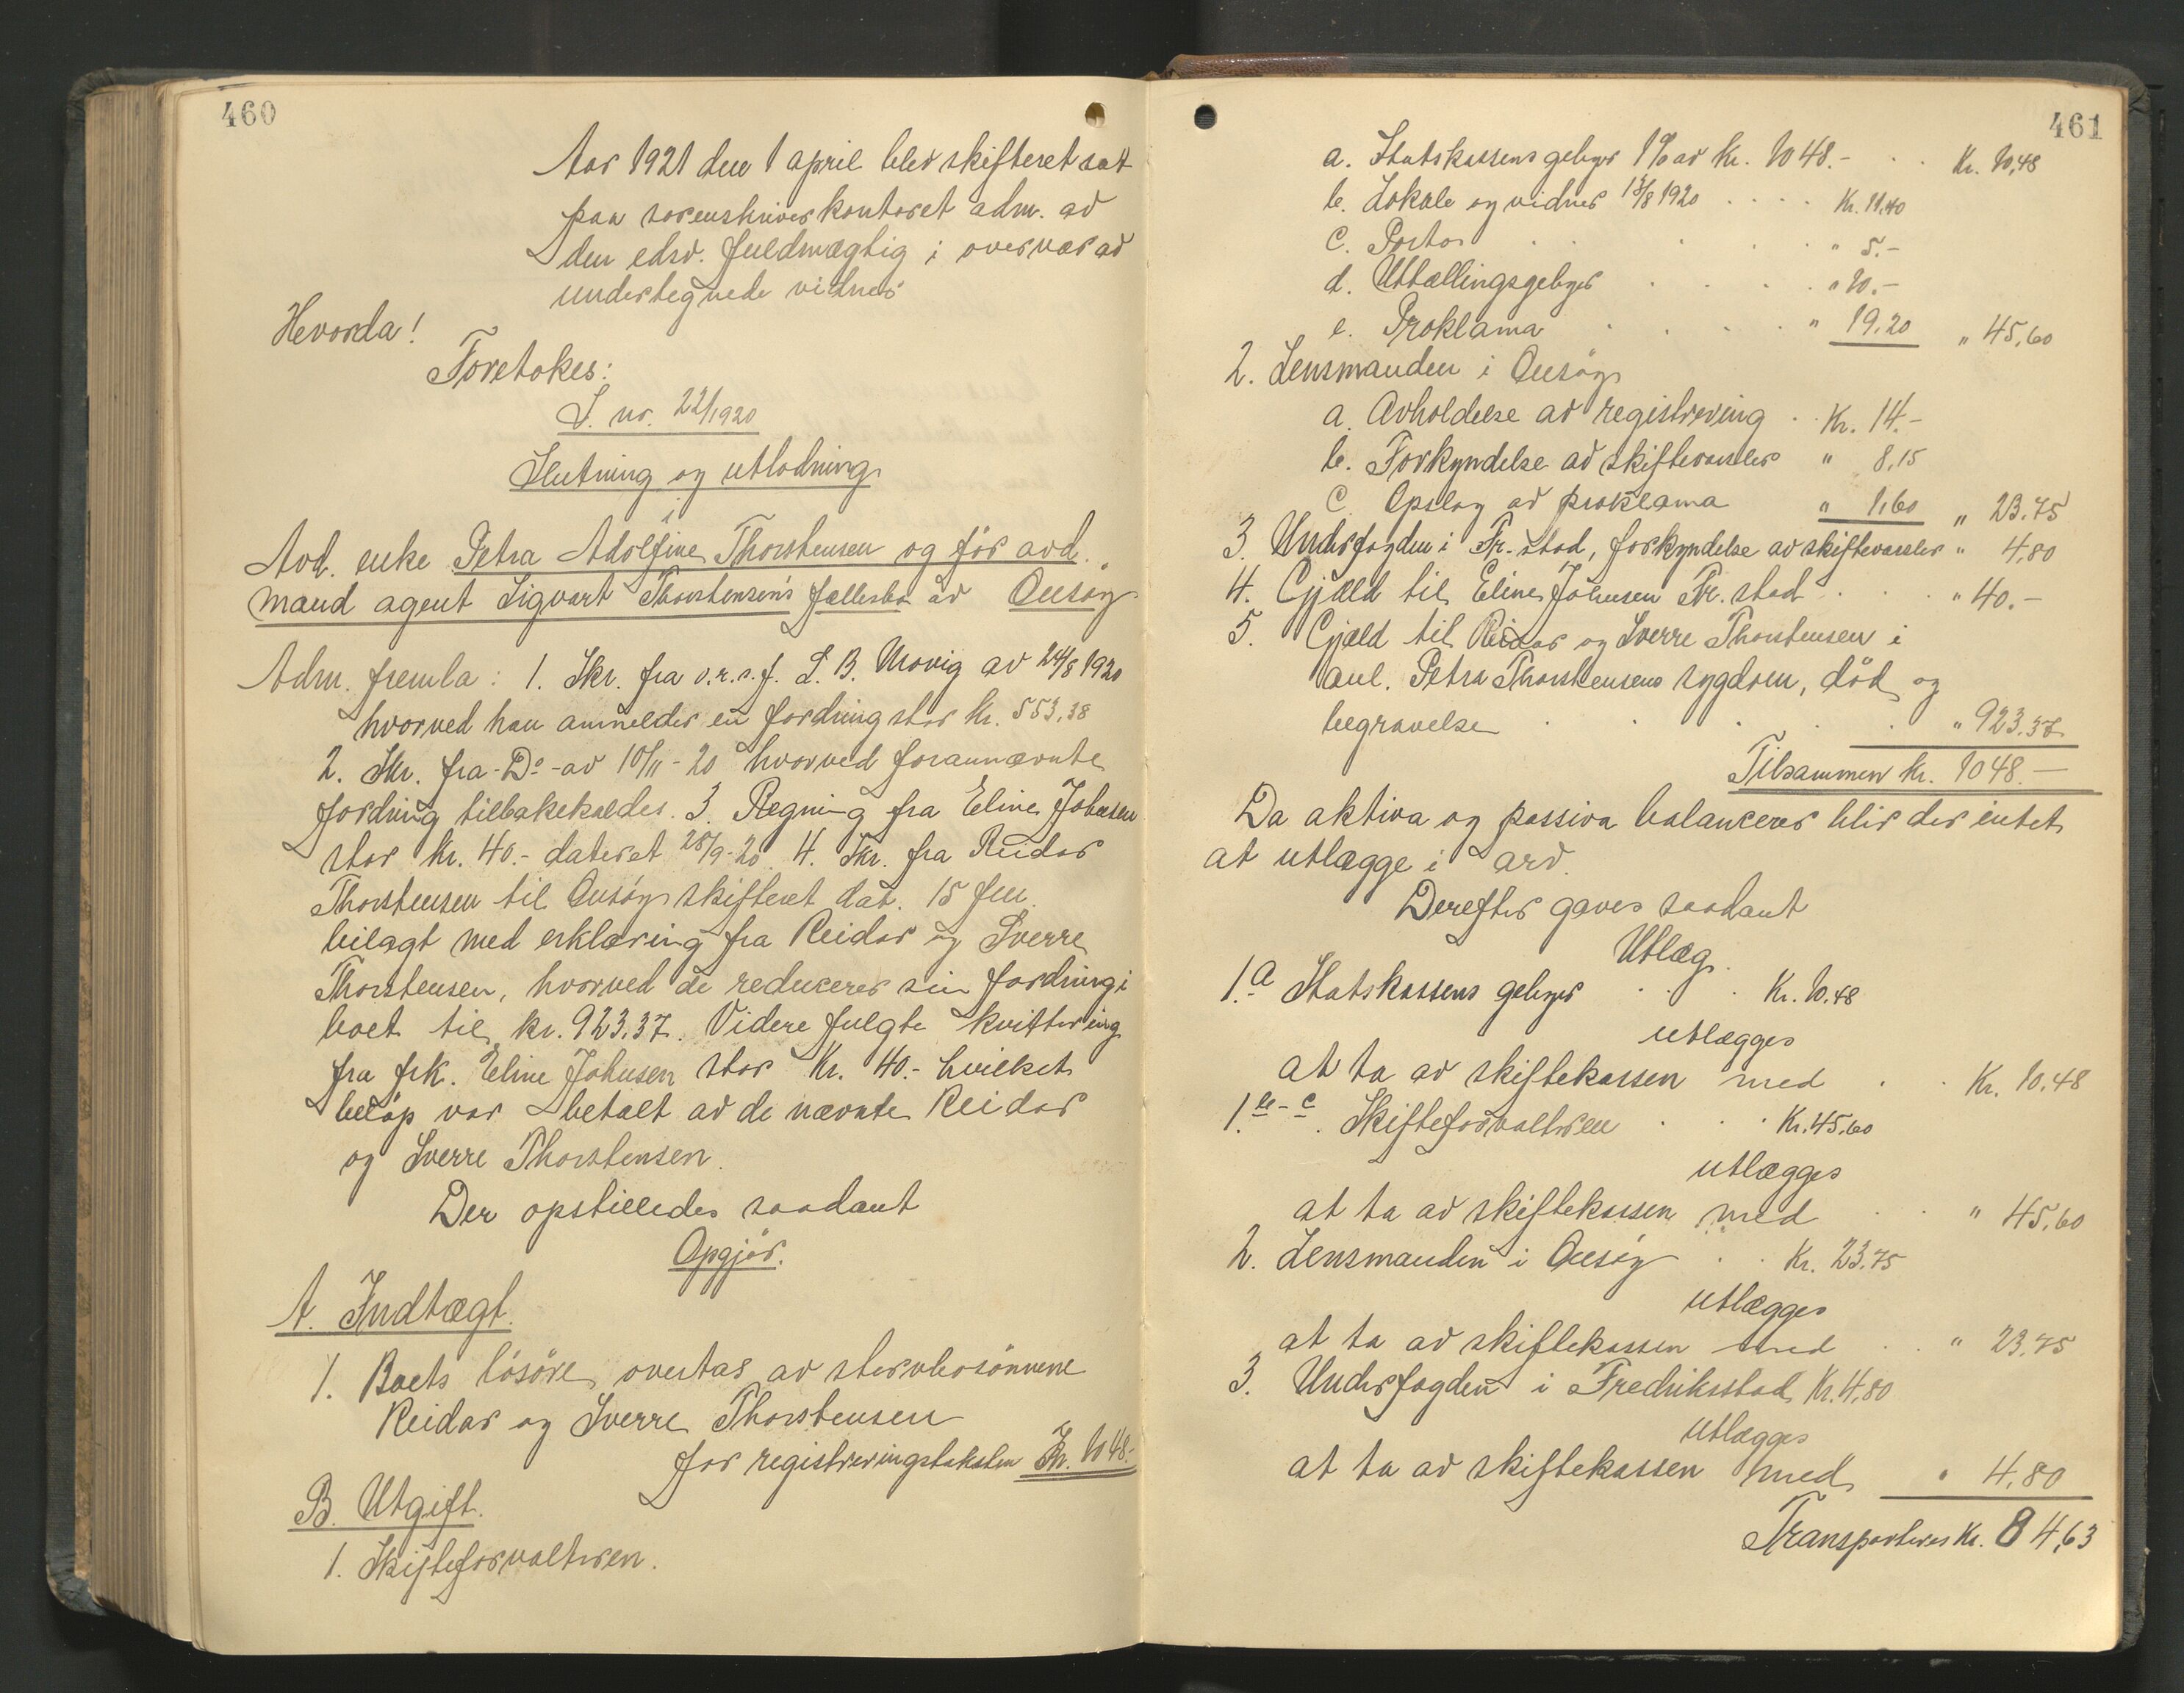 460
Aar 1921 den 1 april blev skifteret sat
paa sorenskriverkontoret adm. av
den edsv. fuldmægtig i overvær av
undertegnede vidner
Hvorda!
Foretokes:
S. no. 22/1920
Slutning og utlodning
i
Avd. enke Petra Adolfine Thorstensen og før avd.
mand agent Sigvart Thorstensen's fællesbo av Onsøy
Adm. fremla: 1. Skr. fra o.r.s.f. L. B. Urovig av 24/8 1920
hvorved han anmelder en fordring stor kr. 553,38
2. Skr. fra - Do - av 10/11 - 20 hvorved forannævnte
fordring tilbakekaldes. 3. Regning fra Eline Johnsen
stor kr. 40.- dateret 28/9-20. 4. Skr. fra Reidar
Thorstensen til Onsøy skifteret dat. 15 fm.
bilagt med erklæring fra Reidar og Sverre
Thorstensen, hvorved de reducerer sin fordring i
boet til kr. 923.37. Videre fulgte kvittering
fra frk. Eline Johnsen stor kr. 40.- hvilket
beløp var betalt av de nævnte Reidar
og Sverre Thorstensen.
Der opstilledes saadant
Opgjør.
A. Indtægt.
1. Boets løsøre, overtas av stervbosønnene
Reidar og Sverre Thorstensen
for registreringstaksten Kr. 1048.-
B. Utgift.
1. Skifteforvalteren.
461
a. Statskassens gebyr 1% av Kr. 1048.- . . Kr. 10,48
b. Lokale og vidner 13/8 1920 . . . . Kr. 11.40
c. Porto . . . . " 5.-
d. Uttællingsgebyr . . . . " 10.-
e. Proklama . . . . " 19.20 " 45,60
2. Lensmanden i Onsøy
a. Avholdelse av registrering . . Kr. 14.-
b. Forkyndelse av skiftevarsler " 8,15
c. Opslag av proklama " 1,60 " 23.75
3. Underfogden i Fr.stad, forkyndelse av skiftevarsler " 4,80
4. Gjæld til Eline Johnsen Fr.stad . . . " 40.-
5. Gjæld til Reidar og Sverre Thorstensen i
anl. Petra Thorstensens sygdom, død og
begravelse . . . . . " 923.37
Tilsammen kr. 1048.-
Da aktiva og passiva balancerer blir der intet
at utlægge i arv.
Derefter gaves saadant
Utlæg.
1.a Statskassens gebyr . . . Kr. 10.48
utlægges
at ta av skiftekassen med . . Kr. 10.48
1.b-e. Skifteforvalteren . . . Kr. 45.60
utlægges
at ta av skiftekassen med . . " 45.60
2. Lensmanden i Onsøy . . Kr. 23.75
utlægges
at ta av skiftekassen med . . " 23.75
3. Underfogden i Fredriksstad Kr. 4,80
utlægges
at ta av skiftekassen med " 4.80
Transporteres Kr. 84,63